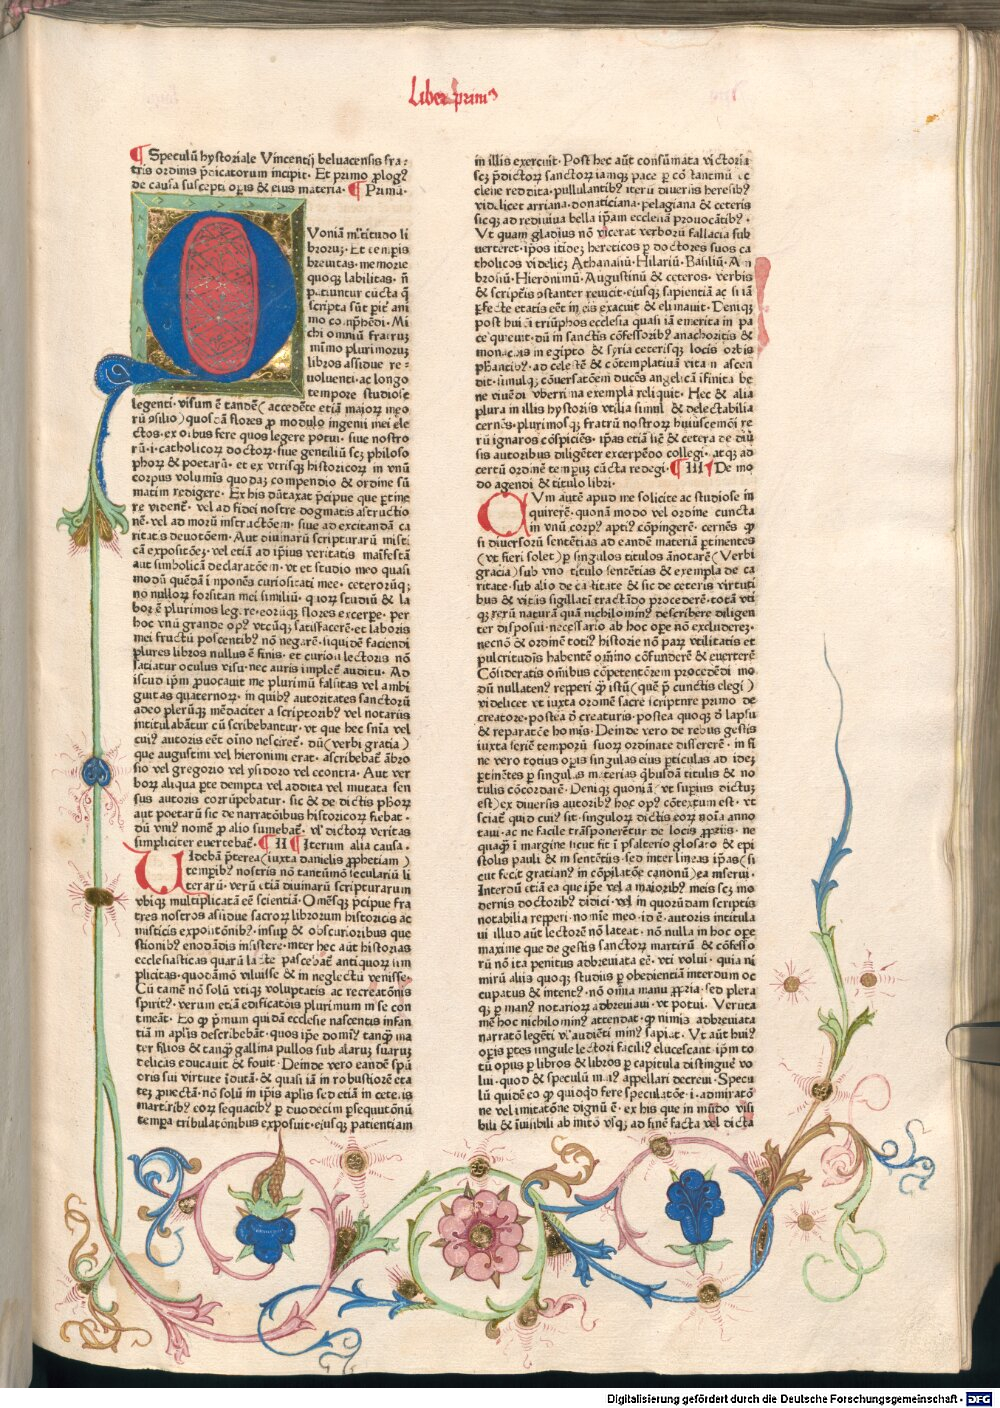 Liber primꝰ
¶ Speculū hystoriale Vincentij beluacensis fra-
tris ordinis p̄dicatorum incipit. Et primo ꝓlogꝰ
de causa suscepti oꝑis & eius materia. ¶ Prima.
Voniā m̄ltitudo li
broruꝫ. Et tempis
breuitas. memorie
quoqꝫ labilitas. ñ
patiuntur cūcta q̄
scripta sūt pit̄ ani
mo comp̄hēdi. Mi
chi omniū fratruꝫ
mīmo plurimoruꝫ
libros assidue re-
uoluenti. ac longo
tempore studiose
legenti. visum ē tandē (accedēte etiā maioꝝ meo
rū ɔsilio) quosdā flores ꝓ modulo ingenii mei ele
ctos. ex oībus fere quos legere potui. siue nostro
rū. i. catholicoꝝ doctoꝝ. siue gentiliū scꝫ philoso
phoꝝ & poetarū. et ex vtrisqꝫ historicoꝝ in vnū
corpus volumīs quodaꝫ compendio & ordine sū
matim redigere. Ex his dūtaxat p̄cipue que ꝑtine
re videnē. vel ad fidei nostre dogmatis astructio
nē. vel ad morū instructōem. siue ad excitandā ca
ritatis deuotōem. Aut diuinarū scripturarū misti
cā expositōeꝫ. vel etiā ad ipsius veritatis maīfestā
aut simbolicā declaratōem. vt et studio meo quasi
modū quēdā īponēs curiositati mee. ceterorūqꝫ
nō nulloꝝ forsitan mei similiū. quoꝝ studiū & la
bor ē plurimos legere. eorūqꝫ flores excerpe. per
hoc vnū grande opꝰ vtcūqꝫ satisfacerē. et laboris
mei fructū poscentibꝰ nō negarē. siquidē faciendi
plures libros nullus ē finis. et curiosi lectoris nō
satiatur oculus visu. nec auris impleē auditu. Ad
istud ipm̄ ꝓuocauit me plurimū falsitas vel ambi
guitas quaternoꝝ. in quibꝰ autoritates sanctorū
adeo plerūqꝫ mēdaciter a scriptoribꝰ vel notariis
intitulabātur cū scribebantur. vt que hec snīa vel
cuiꝰ autoris eēt oīno nescireē. dū (verbi gratia)
que augustini vel hieronimi erat. ascribebaē ābro
sio vel gregorio vel ysidoro vel econtra. Aut ver
boꝝ aliqua ꝑte dempta vel addita vel mutata sen
sus autoris corrūpebatur. sic & de dictis ph̄oꝝ
aut poetarū sic de narratōibus historicoꝝ fiebat.
dū vniꝰ nomē ꝓ alio sumebaē. vl dictoꝝ veritas
simpliciter euertebaē. ¶ II ¶ Iterum alia causa.
Videbā p̄terea (iuxta danielis ꝓphetiam)
temꝑibꝰ nostris nō tantūmō seculariū li
terarū. verū etiā diuinarū scripturarum
vbiqꝫ multiplicatā eē scientiā. Omēsqꝫ p̄cipue fra
tres nostros assidue sacroꝝ librorum historicis ac
misticis expositōnibꝰ. insuꝑ & obscurioribus que
stionibꝰ enodādis insistere. inter hec aūt historias
ecclesiasticas quarū lacte pascebaē antiquoꝝ sim
plicitas. quodāmō viluisse & in neglectū venisse.
Cū tamē nō solū vtiqꝫ voluptatis ac recreatōnis
spiritꝰ. verum etiā edificatōis plurimum in se con
tineāt. Eo qꝫ p̄mum quidā ecclesie nascentis infan
tiā in aplīs describebāt. quos ipē domīꝰ tanqꝫ ma
ter filios & tanqꝫ gallina pullos sub alaruꝫ suaruꝫ
delicas educauit & fouit. Deinde vero eandē spū
oris sui virtute īdutā. & quasi iā in robustiorē eta
teꝫ ꝓuectā. nō solū in ip̄is aplīs sed etiā in ceteris
martiribꝰ eoꝝ sequacibꝰ ꝑ duodecim ꝑsequutōnū
tempa tribulatōnibus exposuit. eiusqꝫ patientiam
in illis exercuit. Post hec aūt consūmata victoria
scꝫ p̄dictoꝝ sanctoꝝ iamqꝫ pace ꝑ cōstantinū ec
clesie reddita. pullulantibꝰ iterū diuersis heresibꝰ
videlicet arriana. donaticiana. pelagiana & ceteris
sicqꝫ ad rediuiua bella ip̄am ecclesiā ꝓuocātibꝰ.
Vt quam gladius nō vicerat verborū fallacia sub
uerteret. ip̄os itideꝫ hereticos ꝑ doctores suos ca
tholicos videlicꝫ Athanasiū. Hilariū. Basiliū. Am
brosiū. Hieronimū. Augustinū & ceteros. verbis
& scriptis ɔstanter reuicit. eiusqꝫ sapientiā ac si iā
ꝑfecte etatis eēt in eis exacuit & elimauit. Deniqꝫ
post huiꝰcā triūphos ecclesia quasi iā emerita in pa
ce quieuit. dū in sanctis cōfessoribꝰ anachoritis &
monachis in egipto & syria ceterisqꝫ locis orbis
ꝑstantibꝰ. ad celestē & cōtemplatiuā vitam ascen
dit. simulqꝫ cōuersatōem ducēs angelicā īfinita be
ne viuēdi vberrima exempla reliquit. Hec & alia
plura in illis hystoriis vtilia simul & delectabilia
cernēs. plurimosqꝫ fratrū nostroꝝ huiuscemōi re
rū ignaros cōspiciēs. ip̄as etiā sic̄ & cetera de diū
sis autoribus diligēter excerpēdo collegi. atqꝫ ad
certū ordinē tempuꝫ cūcta redegi. ¶ III ¶ De mo
do agendi & titulo libri.
CVm autē apud me solicite ac studiose in
quirerē. quonā modo vel ordine cuncta
in vnū corpꝰ aptiꝰ cōpingerē. cernēs qꝫ
si diuersorū sentētias ad eandē materiā ꝑtinentes
(vt fieri solet) ꝑ singulos titulos ānotarē (Verbi
gracia) sub vno titulo sentētias & exempla de ca
ritate. sub alio de castitate & sic de ceteris virtuti
bus & vitiis sigillatī tractādo procederē. totā vti
qꝫ reꝝ naturā quā nichilominꝰ describere diligen
ter disposui. necessario ab hoc oꝑe nō excludereꝫ.
necnō & ordinē totiꝰ historie nō parꝫ vtilitatis et
pulcritudīs habentē om̄ino cōfunderē & euerterē
Cōsideratis omibus cōpetentōrem procedēdi mo
dū nullatenꝰ repperi qꝫ istū (quē p̄ cunctis elegi)
videlicet vt iuxta ordinē sacre scriptnre primo de
creatore. postea de creaturis. postea quoqꝫ de lapsu
& reparatōe homīs. Deinde vero de rebus gestis
iuxta seriē temporū suoꝝ ordinate dissererē. in fi
ne vero totius oꝑis singulas eius ꝑticulas ad ideꝫ
ꝑtinētes ꝑ singulas materias q̄busdā titulis & no
tulis cōcordarē. Deniqꝫ quoniā (vt suꝑius dictuꝫ
est) ex diuersis autoribꝰ hoc opꝰ cōtextum est. vt
sciat̄ quid cuiꝰ sit. singuloꝝ dictis eoꝝ noīa anno
taui. ac ne facile trāsponerētur de locis ꝓpriis. ne
quaqꝫ ī margine sicut fit ī psalterio glosato & epi
stolis pauli & in sentētiis. sed inter lineas ip̄as (si
cut fecit gratianꝰ in cōpilatōe canonū) ea inserui.
Interdū etiā ea que ipē vel a maioribꝰ meis scꝫ mo
dernis doctoribꝰ didici. vel in quorūdam scriptis
notabilia repperi. noīe meo. id ē. autoris intitula
ui illud aūt lectorē nō lateat. nō nulla in hoc oꝑe
maxime que de gestis sanctoꝝ martirū & cōfesso
rū nō ita penitus adbreuiata eē. vti volui. quia ni
mirū aliis quoqꝫ studiis ꝑ obedientiā interdum oc
cupatus & intentꝰ. nō omīa manu ꝓpria. sed plera
qꝫ ꝑ manꝰ notarioꝝ adbreuiaui. vt potui. Verūta
mē hoc nichilo minꝰ attendat. qꝫ nimis adbreuiata
narratō legēti vl audiēti minꝰ sapiat. Vt aūt huiꝰ
oꝑis ꝑtes singule lectori faciliꝰ elucescant. ip̄m to
tū opus ꝑ libros & libros ꝑ capitula distinguē vo
lui. quod & speculū maiꝰ appellari decreui. Specu
lū quidē eo qꝫ quicqd fere speculatōe. i. admiratō
ne vel imitatōne dignū ē. ex his que in mūdo visi
bili & īuisibili ab initō vsqꝫ ad finē facta vel dicta
Digitalisierung gefördert durch die Deutsche Forschungsgemeinschaft - DFG